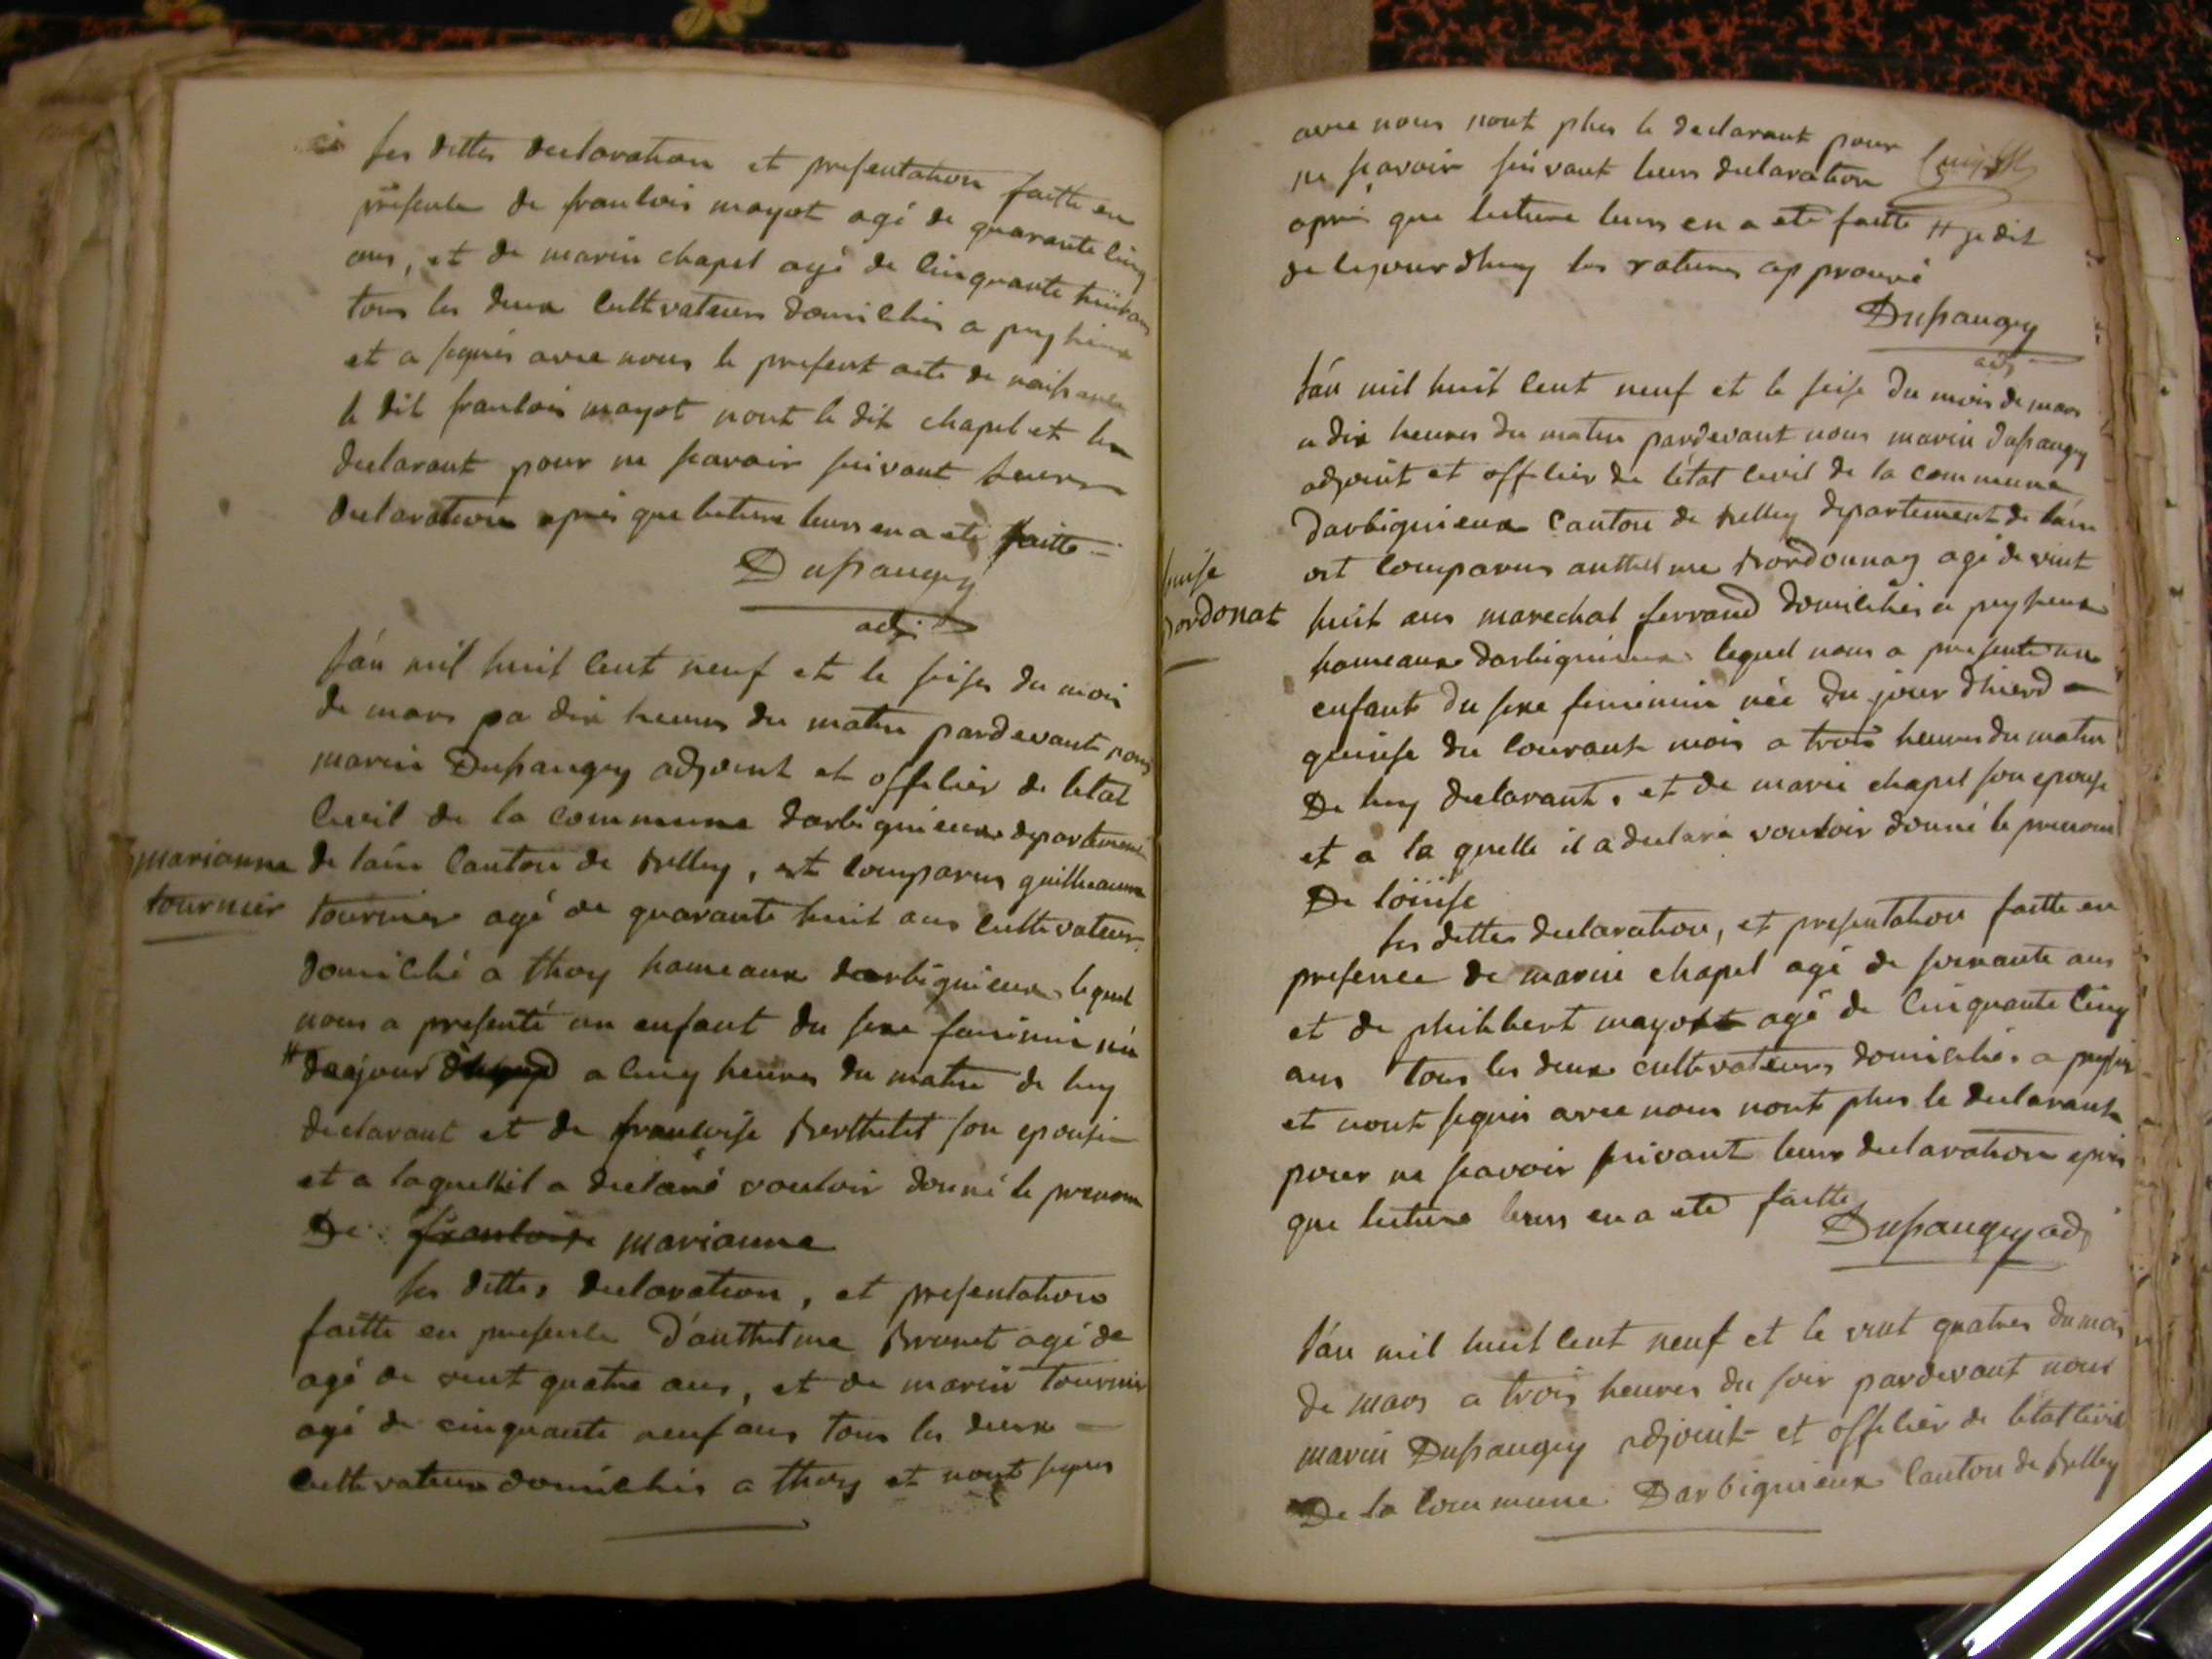 les dittes declaration et presentation faitte en
presence de francois mayot agé de quarante cinq
ans, et de marin chapel agé de cinquante huit ans
tous les deux cultivateurs domicilies a peysieux
et a signés avec nous le present acte de naissance
le dit francois mayot nont le dit chapel et le
declarant pour ne scavoir suivant leurs
declaration apres que lecture leurs en a eté faitte
Dupaugey
adj
marianne
tournier
l'an mil huit cent neuf et le seise du mois
de mars a dix heures du matin pardevant nous
marin Dupaugey adjoint et officier de letat
civil de la commune darbignieux departement
de lain canton de belley, est comparus guilleaume
tournier agé de quarante huit ans cultivateur
domicilié a thoy hameaux darbignieux lequel
nous a presenté un enfant du sexe feminin née
# du jour a cinq heures du matin de luy
declarant et de francoise berthelet son epouse
et a laquellil a declaré vouloir donné le prenom
De francoise marianne
les dittes declaration, et presentation
faitte en presence d'anthelme brunet agé de
agé de vint quatre ans, et de marin tournier
agé de cinquante neuf ans tous les deux
cultivateurs domicilies a thoy et nont signes
avec nous nont plus le declarant pour
ne scavoir suivant leurs declaration
apres que lecture leurs en a eté faitte # je dit
de cejourdhuy les ratures approuvé
Dupaugey
adj
louise
bordonat
l'an mil huit cent neuf et le seise du mois de mars
a dix heures du matin pardevant nous marin dupaugey
adjoint et officier de l'état civil de la commune
darbignieux canton de belley departement de lain
est comparus anthelme bordonnay agé de vint
huit ans marechal ferrand domicilies a peysieux
hameaux darbignieux lequel nous a presente un
enfant du sexe feminin née du jour dhierd
quinse du courant mois a trois heures du matin
De luy declarant, et de marie chapel son epouse
et a la quelle il a declaré vouloir donné le prenom
De loüise
les dittes declaration, et presentation faitte en
presence de marin chapel agé de soixante ans
et de philibert mayot agé de cinquante cinq
ans tous les deux cultivateurs domicilies a peysieux
et nont signes avec nous nont plus le declarant
pour ne scavoir suivant leurs declaration apres
que lecture leurs en a eté faitte
Dupaugey adj
l'an mil huit cent neuf et le vint quatres du mois
de mars a trois heures du soir pardevant nous
marin Dupaugey adjoint et officier de letat civil
De la commune Darbignieux canton de belley